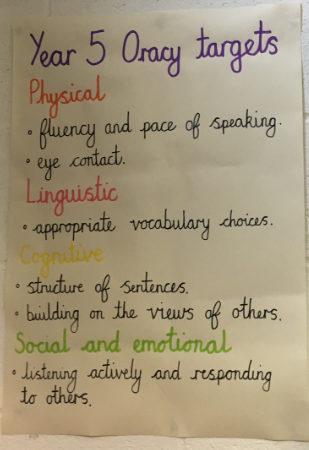 Year 5 Oracy targets
Physical
• fluency and pace of speaking.
• eye contact.
Linguistic
• appropriate vocabulary choices.
Cognitive
• structure of sentences.
• building on the views of others.
Social and emotional
• listening actively and responding
to others.